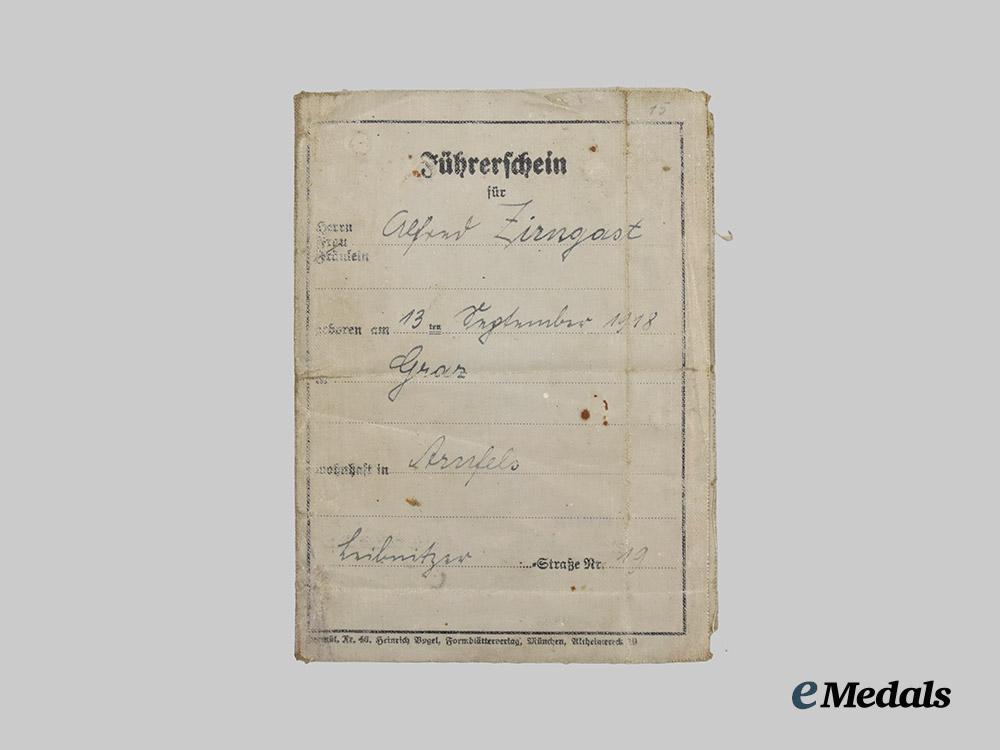 15
Führerschein
für
Herrn
Frau
Fräulein
Alfred Zirngast
geboren am 13 ten September 1918
in Graz
wohnhaft in Arnfels
Leibnitzer -Straße Nr. 19
Nr. 46. Heinrich Vogel, Formblätterverlag, München, Altheimereck 19
eMedals